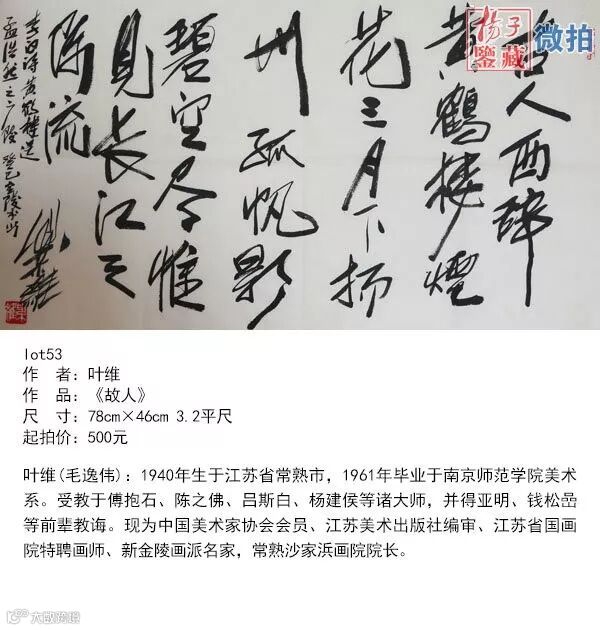 扬子
鉴藏
微拍
故人西辞
黄鶴楼煙
花三月下扬
州孤帆影
碧空尽惟
見长江天
际流
李白诗黄鹤楼送
孟浩然之广陵 癸巳
lot53
作 者：叶维
作 品：《故人》
尺 寸：78cm×46cm 3.2平尺
起拍价：500元
叶维(毛逸伟)：1940年生于江苏省常熟市，1961年毕业于南京师范学院美术
系。受教于傅抱石、陈之佛、吕斯白、杨建侯等诸大师，并得亚明、钱松喦
等前辈教诲。现为中国美术家协会会员、江苏美术出版社编审、江苏省国画
院特聘画师、新金陵画派名家，常熟沙家浜画院院长。
大歐跨境